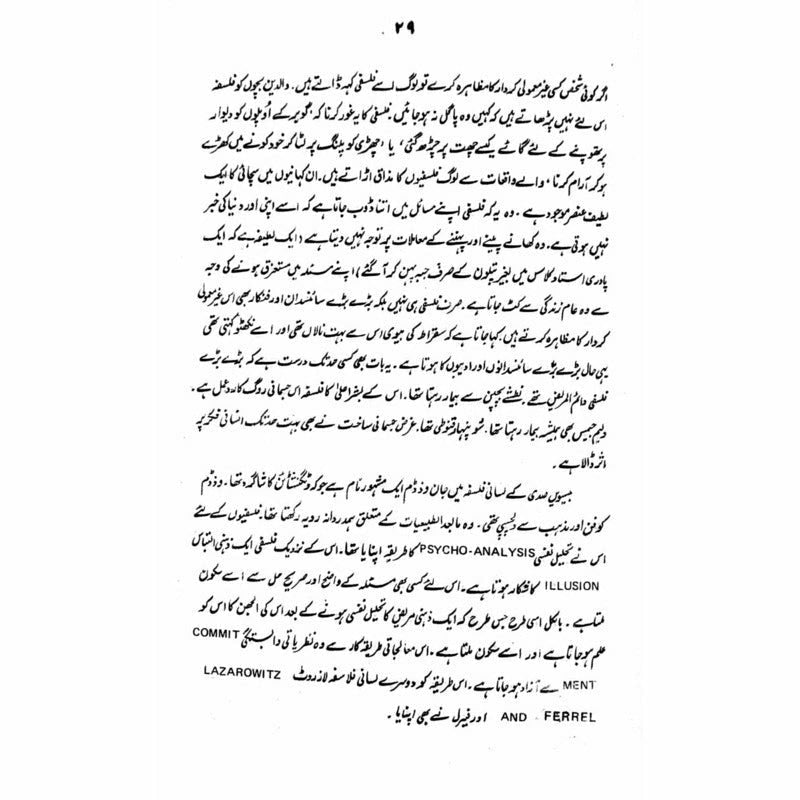 ۲۹
اگر کوئی شخص کسی غیر معمولی کردار کا مظاہرہ کرے تو لوگ اسے فلسفی کہہ ڈالتے ہیں۔ والدین بچوں کو فلسفہ
اس لئے نہیں پڑھاتے ہیں کہ کہیں وہ پاگل نہ ہو جائیں۔ فلسفی کا یہ غور کرنا کہ 'گوبر کے اُوپلوں کو دیوار
پر تھوپنے کے لئے گائے کیسے چھت پر چڑھ گئی' یا 'چھڑی کو پلنگ پر لٹا کر خود کونے میں کھڑے
ہو کر آرام کرنا' والے واقعات سے لوگ فلسفیوں کا مذاق اڑاتے ہیں۔ ان کہانیوں میں سچائی کا ایک
لطیف عنصر موجود ہے۔ وہ یہ کہ فلسفی اپنے مسائل میں اتنا ڈوب جاتا ہے کہ اسے اپنی اور دنیا کی خبر
نہیں ہوتی ہے۔ وہ کھانے پینے اور پہننے کے معاملات پر توجہ نہیں دیتا ہے (ایک لطیفہ ہے کہ ایک
پادری استاد کلاس میں بغیر پتلون کے صرف جبہ پہن کر آ گئے) اپنے مسئلہ میں مستغرق ہونے کی وجہ
سے وہ عام زندگی سے کٹ جاتا ہے۔ صرف فلسفی ہی نہیں بلکہ بڑے بڑے سائنسدان اور فنکار بھی اس غیر معمولی
کردار کا مظاہرہ کرتے ہیں۔ کہا جاتا ہے کہ سقراط کی بیوی اس سے بہت نالاں تھی اور اسے نکھٹو کہتی تھی
یہی حال بڑے بڑے سائنسدانوں اور ادیبوں کا ہوتا ہے۔ یہ بات بھی کسی حد تک درست ہے کہ بڑے بڑے
فلسفی دائم المریض تھے۔ نطشے بچپن سے بیمار رہتا تھا۔ اس کے بشر اعلیٰ کا فلسفہ اس جسمانی روگ کا ردعمل ہے۔
ولیم جیمس بھی ہمیشہ بیمار رہتا تھا۔ شوپنہار قنوطی تھا۔ غرض جسمانی ساخت نے بھی بہت حد تک انسانی فکر پر
اثر ڈالا ہے۔
بیسویں صدی کے لسانی فلسفہ میں جان وذڈم ایک مشہور نام ہے جو کہ وٹگنشٹائن کا شاگرد تھا۔ وذڈم
کو فن اور مذہب سے دلچسپی تھی۔ وہ مابعد الطبیعیات کے متعلق ہمدردانہ رویہ رکھتا تھا۔ فلسفیوں کے لئے
اس نے تحلیل نفسی PSYCHO-ANALYSIS کا طریقہ اپنایا تھا۔ اس کے نزدیک فلسفی ایک ذہنی التباس
ILLUSION کا شکار ہوتا ہے۔ اس لئے کسی بھی مسئلہ کے واضح اور صریح حل سے اسے سکون
ملتا ہے۔ بالکل اسی طرح جس طرح کہ ایک ذہنی مریض کا تحلیل نفسی ہونے کے بعد اس کی الجھن کا اس کو
علم ہو جاتا ہے اور اسے سکون ملتا ہے۔ اس معالجاتی طریقہ کار سے وہ نظریاتی وابستگی COMMIT
MENT سے آزاد ہو جاتا ہے۔ اس طریقہ کو دوسرے لسانی فلاسفہ لازروٹ LAZAROWITZ
AND FERREL اور فیرل نے بھی اپنایا۔